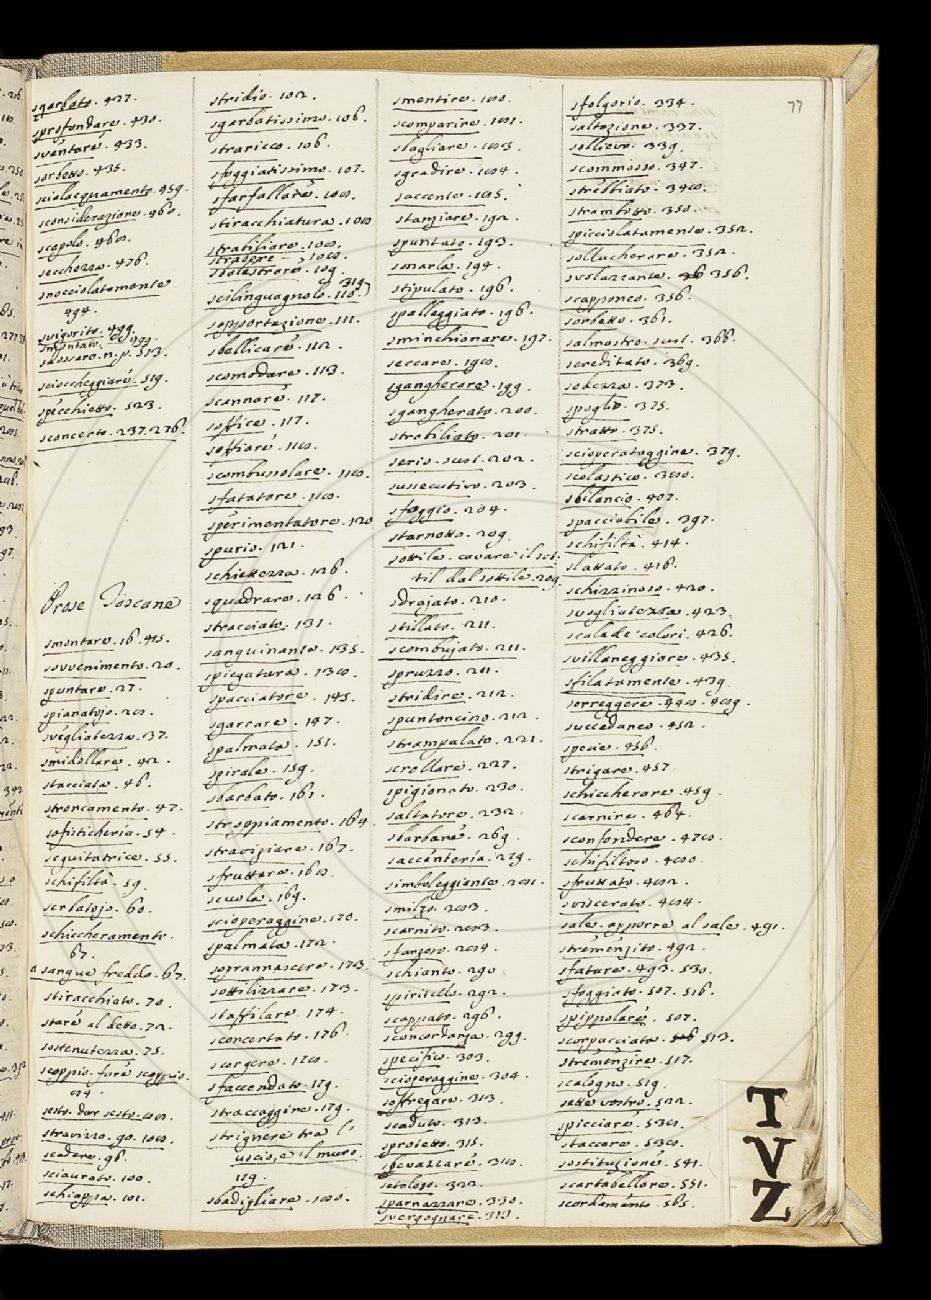 77
sgarbato. 427.
sprofondare. 430.
sventare. 433.
sorbetto. 435.
scialacquamento. 459.
sconsiderazione. 460.
scapolo. 468.
secchezza. 476.
snocciolatamente
494.
svigorito. 499.
smontato. 499.
sdossare. n.p. 513.
sciaccheggiare. 519.
spicchietto. 523.
sconcerto. 237. 276.
Prose Toscane
smontare. 16. 415.
sovvenimento. 20.
spuntare. 27.
spianatojo. 28.
svegliatezza. 37.
smidollare. 42.
stacciata. 46.
stroncamento. 47.
sofisticheria. 54.
seguitatrice. 55.
schifiltà. 59.
serbatojo. 60.
schiccheramento.
67.
a sangue freddo. 67.
stiracchiato. 70.
stare al detto. 72.
sostenutezza. 75.
scoppio. fare scoppio.
84.
sesto. dar sesto. 88.
stravizzo. 90. 108.
sedere. 98.
sciaurato. 100.
schioppo. 101.
stridio. 102.
sgarbatissimo. 106.
stracicco. 106.
sfoggiatissimo. 107.
sfarfallare. 108.
stiracchiatura. 108
strabiliare. 108.
stradere. 108.
sbalestrare. 109.
319.
scilinguagnolo. 110.
sopportazione. 111.
sbellicare. 112.
scomodare. 113.
scannare. 117.
soffice. 117.
soffiare. 118.
scombussolare. 118.
sfatatore. 118.
sperimentatore. 120
spurio. 121.
schiettezza. 126.
squadrare. 126.
stracciato. 131.
sanguinante. 135.
spiegatura. 138.
spacciatore. 145.
sgarrare. 147.
spalmata. 151.
spirale. 159.
sbarbato. 161.
stroppiamento. 164.
straviziare. 167.
sfruttare. 168.
scuola. 169.
scioperaggine. 170.
spalmata. 172.
soprannascere. 173.
sottilizzare. 173.
staffilare. 174.
sconcertato. 176.
scorgere. 178.
sfaccendato. 179.
straccaggine. 179.
strignere tra l'
uscio, e il muro.
179.
sbadigliare. 180.
smentire. 180.
scomparire. 181.
stagliare. 183.
sgradire. 184.
saccente. 185.
stanziare. 192.
spuntato. 193.
smarla. 194.
stipulato. 196.
spalleggiato. 196.
sminchionare. 197.
seccare. 198.
sgangherare. 199.
sgangherato. 200.
strabiliato. 201.
serio. sust. 202.
sussecutivo. 203.
sfoggio. 204.
starnotto. 209.
sottile. cavare il sot-
til dal sottile. 209.
sdrajato. 210.
stillato. 211.
scombujato. 211.
spruzzo. 211.
stridire. 212.
spuntoncino. 212.
strampalato. 221.
scrollare. 227.
spigionato. 230.
saltatore. 232.
sbarbare. 269.
saccenteria. 279.
simboleggiante. 281.
smilzo. 283.
scarnito. 283.
sfarzoso. 284.
schianto. 290
spiritello. 292.
scappato. 296.
sconcordanza. 299.
specifico. 303.
scioperaggine. 304.
soffregare. 313.
scaduto. 313.
protetto. 315.
sbevazzare. 318.
setoloso. 322.
sparnazzare. 330.
svergognare. 313.
sfolgorio. 334.
saltazione. 337.
sollievo. 339.
scommosso. 347.
strebbiato. 348.
strambotto. 350.
spicciolatamente. 352.
sollucherare. 352.
svolazzante. 356.
scapponeo. 356.
sorbetto. 361.
salmastro. sust. 366.
screditato. 369.
sobezza. 373.
spoglio. 375.
stratto. 375.
scioperataggine. 379.
scolastico. 380.
sbilancio. 407.
spacciabile. 397.
schifiltà. 414.
slattato. 416.
schizzinoso. 420.
svogliatezza. 423.
scala de' colori. 426.
svillaneggiare. 435.
sfilatamente. 439.
sorreggere. 448. 489.
succedaneo. 452.
specie. 456.
strigare. 457.
schiccherare. 459.
scernire. 464.
sconfondere. 478.
schifiltoso. 480.
sfruttato. 482.
sviscerato. 484.
sale. apporre al sale. 491.
stremenzito. 492.
sfatare. 493. 530.
sfoggiato. 507. 516.
spippolare. 507.
scorpacciata. 513.
stremenzire. 517.
scalogno. 519.
sette vostro. 522.
spicciare. 538.
staccare. 538.
sostituzione. 541.
scartabellare. 551.
scordamento. 565.
T
V
Z